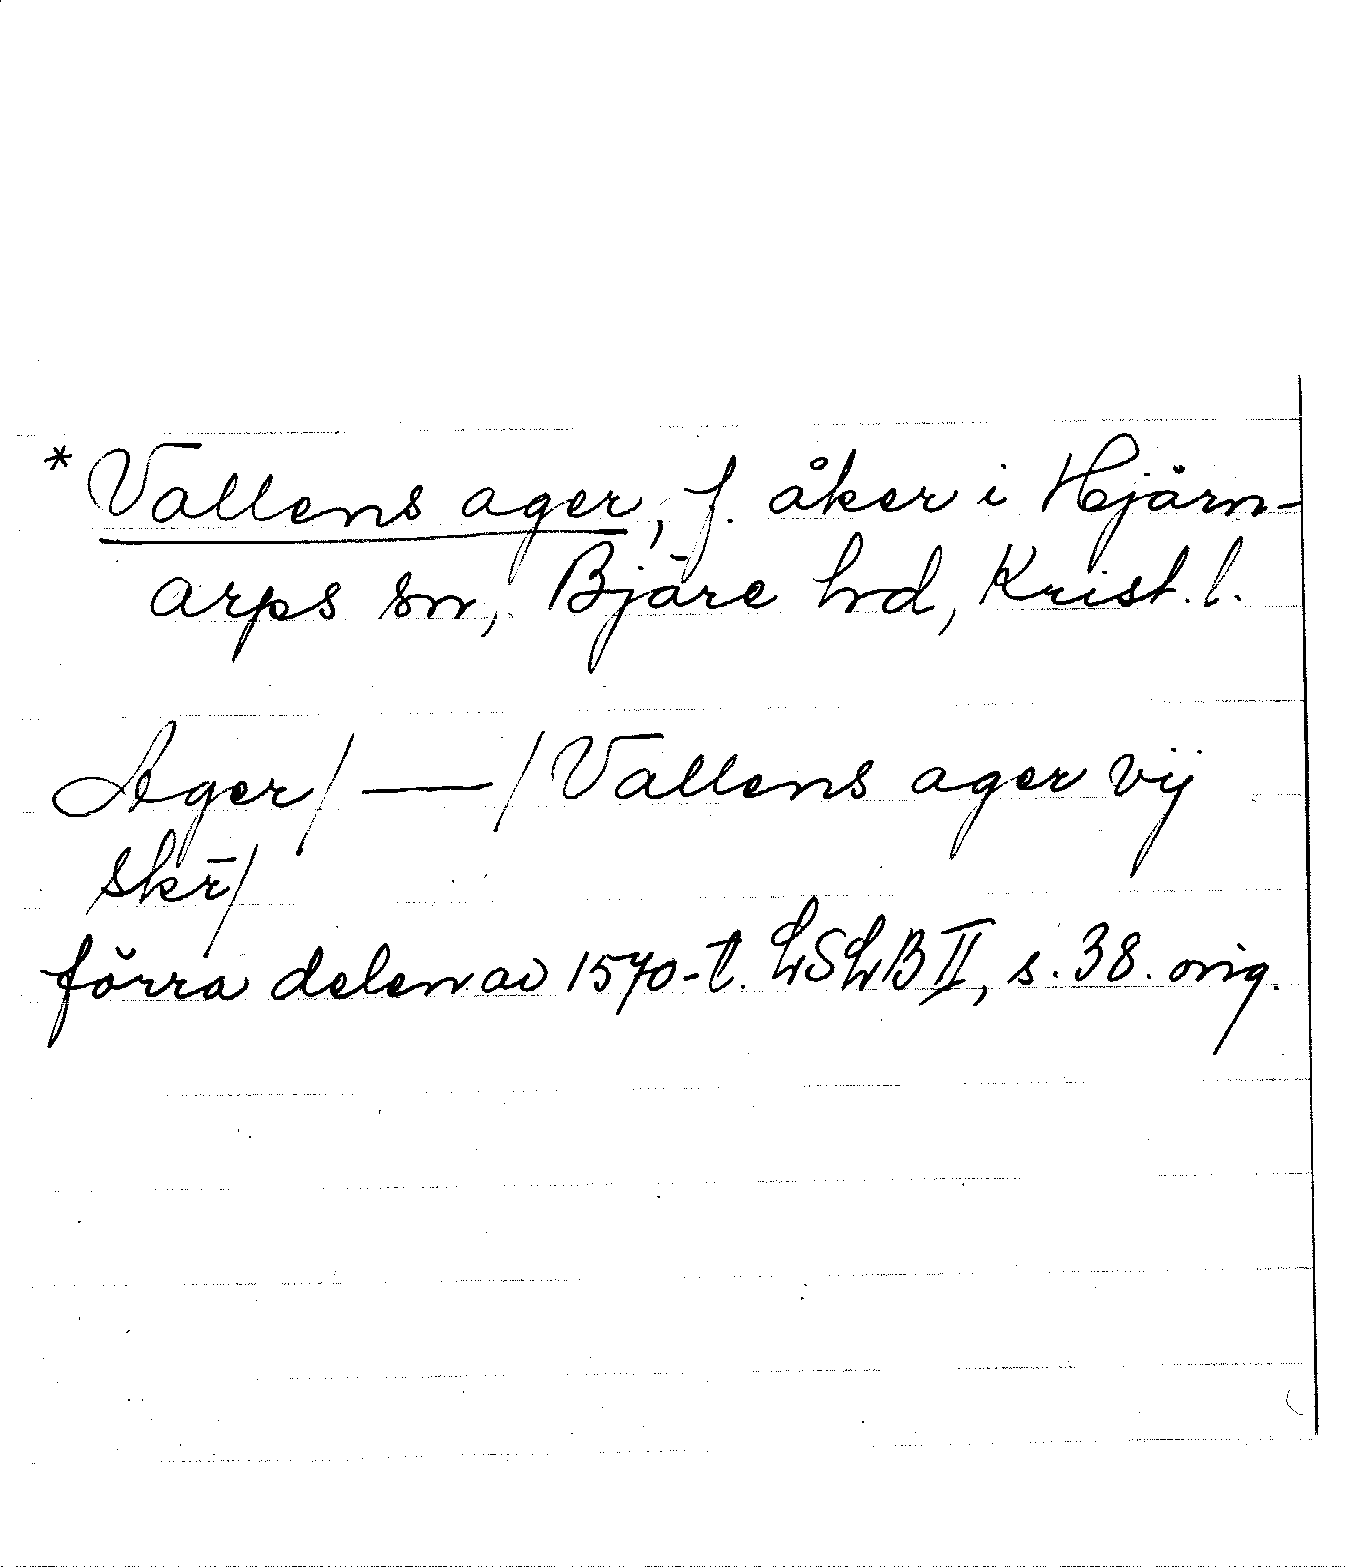 * Vallens ager, f. åker i Hjärn-
arps sn, Bjäre hd, Krist. l.
Ager/ — / Vallens ager vij
skr̄/
förra delen av 1570-t. LSLB II, s. 38. orig.